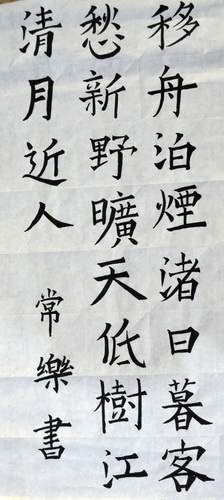 移舟泊煙渚日暮客
愁新野曠天低樹江
清月近人
常樂書